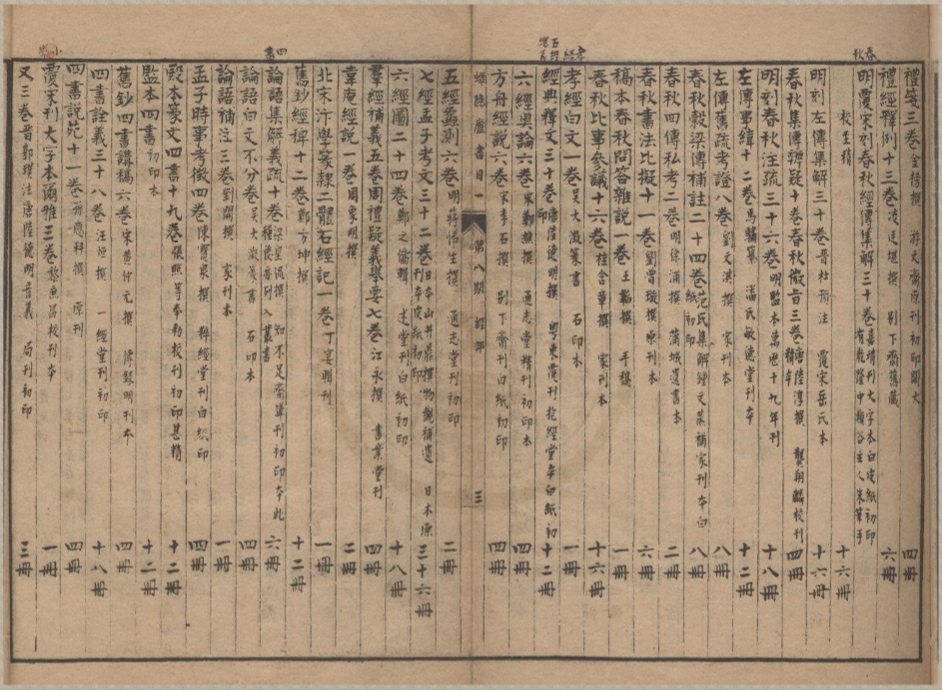 禮箋三卷 金榜撰 游文齋原刊初印闊大 四冊
禮經釋例十三卷 凌廷堪撰 別下齋舊藏 六冊
春秋
明覆宋刻春秋經傳集解三十卷 嘉靖刊大字本白皮紙初印 有乾隆中 主人朱筆手
校至精 十六冊
明刻左傳集解三十卷 晉杜預注 覆宋岳氏本 十六冊
春秋集傳辨疑十卷春秋微旨三卷 唐陸淳撰 龔翔麟校刊 精本 四冊
明刻春秋注疏三十六卷 明監本萬歷十九年刊 十八冊
左傳事緯十二卷 馬驌纂 潘氏敏德堂刊本 十二冊
左傳舊疏考證八卷 劉文淇撰 家刊本 八冊
春秋穀梁傳補註二十四卷 范氏集解鍾文烝補家刊本白紙初印 八冊
春秋四傳私考二卷 明徐浦撰 蒲城遺書本 二冊
春秋書法比擬十一卷 劉曾璇撰原刊本 六冊
稿本春秋問答雜說一卷 王韜撰 手稿 一冊
春秋比事參議十六卷 桂含章撰 家刊本 十六冊
孝經
孝經白文一卷 吳大澂篆書 石印本 一冊
五經總義
經典釋文三十卷 唐陸德明撰 粵東覆刊抱經堂本白紙初印 十二冊
六經奧論六卷 宋鄭樵撰 通志堂精刊初印本 四冊
方舟經說六卷 宋李石撰 別下齋刊白紙初印 四冊
書目一 第八期 三
五經蠡測六卷 明蔣悌生撰 通志堂刊初印 二冊
七經孟子考文三十二卷 日本山井鼎撰物觀補遺 日本原刊本皮紙初印 三十六冊
六經圖二十四卷 鄭之僑輯 述堂刊白紙初印 十八冊
羣經補義五卷周禮疑義舉要七卷 江永撰 書業堂刊 四冊
韋庵經說一卷 周象明撰 二冊
北宋汴學篆隸二體石經記一卷 丁晏輯刊 一冊
舊鈔經稗十二卷 鄭方坤撰 十二冊
四書
論語集解義疏十卷 梁皇侃撰 知不足齋單刊初印本此種後香刊入叢書 六冊
論語白文不分卷 吳大澂篆書 石印本 四冊
論語補注三卷 劉開撰 家刊本 一冊
孟子時事考徵四卷 陳寶泉撰 稗經堂刊白紙印 四冊
殿本篆文四書十九卷 張照等奉勅校刊初印甚精 十二冊
監本四書 初印本 十二冊
舊鈔四書講稿六卷 宋黃仲元撰 四冊
四書詮義三十八卷 汪烜撰 一經堂刊初印 十八冊
四書說苑十一卷 孫應科撰 原刊 四冊
小學
覆宋刊大字本爾雅三卷 校刊本 一冊
又三卷 晉郭璞注唐陸德明音義 局刊初印 三冊